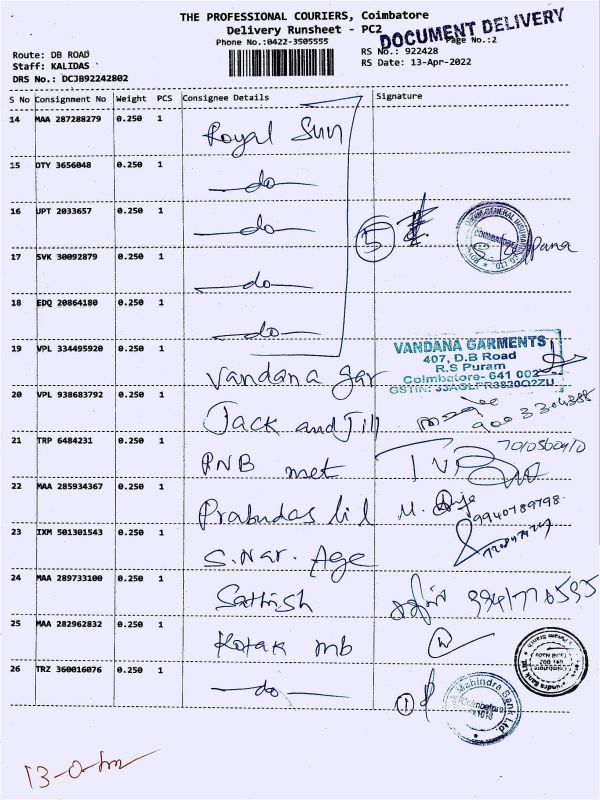 THE PROFESSIONAL COURIERS, Coimbatore
Delivery Runsheet - PC2
DOCUMENT DELIVERY
Phone No.:0422-3505555
Page No.:2
Route: DB ROAD
Staff: KALIDAS
DRS No.: DCJB92242802
RS No.: 922428
RS Date: 13-Apr-2022
S No Consignment No Weight PCS Consignee Details Signature
14 MAA 287288279 0.250 1 Royal Sun
15 DTY 3656048 0.250 1 do
16 UPT 2033657 0.250 1 do
5
17 SVK 30092879 0.250 1 do
18 EDQ 20864180 0.250 1 do
19 VPL 334495920 0.250 1 Vandana gar
VANDANA GARMENTS
407, D.B Road
R.S Puram
Coimbatore- 641 002
20 VPL 938683792 0.250 1 Jack and Jill
21 TRP 6484231 0.250 1 PNB met
22 MAA 285934367 0.250 1 Prabudas lil
9940789798
23 IXM 501301543 0.250 1 S. Nar. Age
24 MAA 289733100 0.250 1 Sathish
25 MAA 282962832 0.250 1 Kotak mb
26 TRZ 360016076 0.250 1 do
1
Mahindra Bank Ltd
Coimbatore